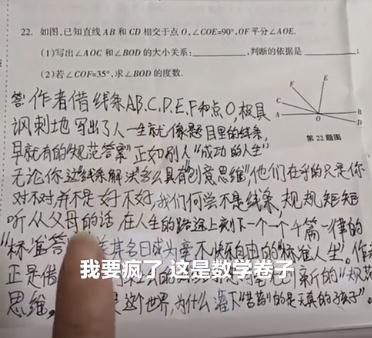 22. 如图,已知直线 AB 和 CD 相交于点 O,∠COE=90°,OF 平分∠AOE.
(1)写出∠AOC 和∠BOD 的大小关系: ,判断的依据是 ;
(2)若∠COF=35°,求∠BOD 的度数.
F
E
C
A
O
B
D
第 22 题图
答:作者借线条AB、C、D、E、F和点O,极具
讽刺地写出了人一生就像题目里的线条,
早就有的"规范答案"正如别人"成功的人生"
无论你这线条解决多么具有创意思维,他们在乎的只是你
对不对并不是好不好,我们何尝不是线条,规规矩矩
听从父母的话,在人生的路途上刻下一个个千篇一律的
"标准答 美其名曰成为毫不 自由的"标准人生"。作
正是借 新的"规
思维 是这个世界,为什么 下 的是天真的孩子"。
我要疯了 这是数学卷子